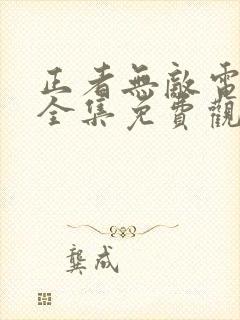 正者無敵電
全集免費觀
龔成